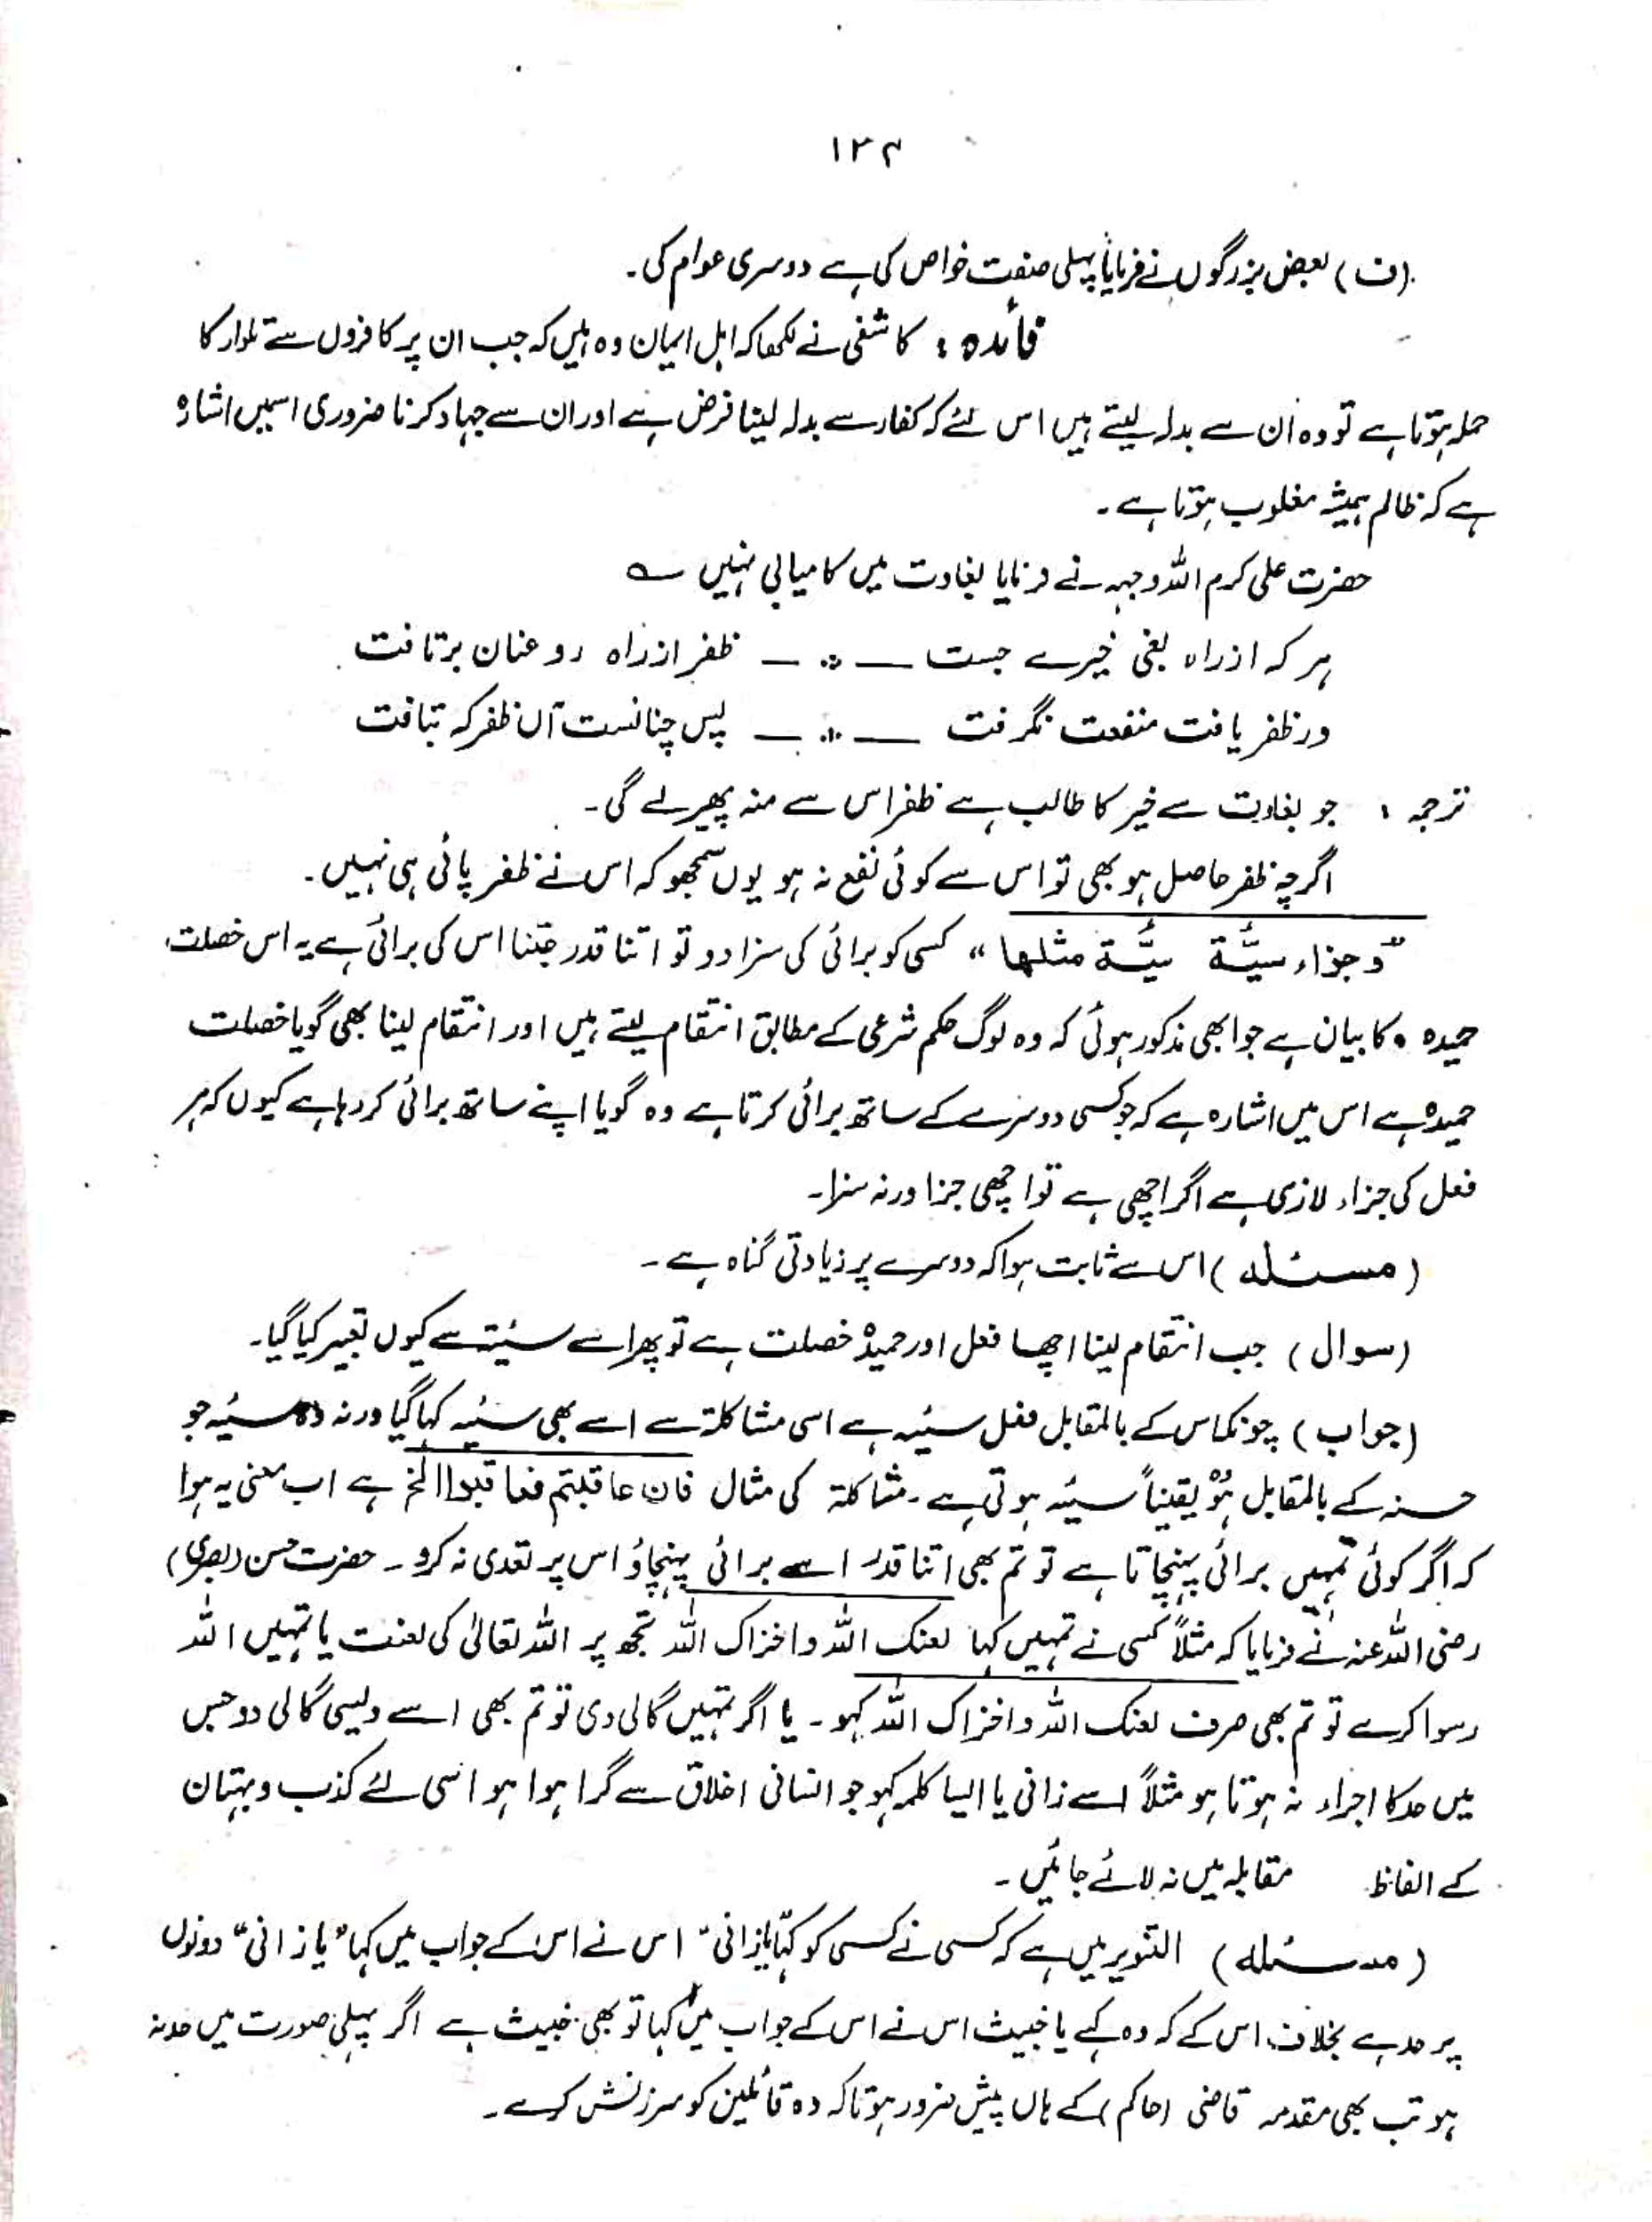 ۱۲۴
(ف) بعض بزرگوں نے فرمایا پہلی صفت خواص کی ہے دوسری عوام کی۔
فائدہ : کاشفی نے لکھا کہ اہل ایمان وہ ہیں کہ جب ان پر کافروں سے تلوار کا
حملہ ہوتا ہے تو وہ اُن سے بدلہ لیتے ہیں اس لئے کہ کفار سے بدلہ لینا فرض ہے اور ان سے جہاد کرنا ضروری اسمیں اشارہ
ہے کہ ظالم ہمیشہ مغلوب ہوتا ہے۔
حضرت علی کرم اللہ وجہہ نے فرمایا بغاوت میں کامیابی نہیں ؎
ہر کہ از راہ بغی خیرے جست — ∴ — ظفر از راہ رو عنان برتافت
ور ظفر یافت منفعت نگرفت — ∴ — پس چنانست آں ظفر کہ نیافت
ترجمہ : جو بغاوت سے خیر کا طالب ہے ظفر اس سے منہ پھیر لے گی۔
اگرچہ ظفر حاصل ہو بھی تو اس سے کوئی نفع نہ ہو یوں سمجھو کہ اس نے ظفر پائی ہی نہیں۔
"وجزاء سیّئۃ سیّئۃ مثلہا" کسی کو برائی کی سزا دو تو اتنا قدر جتنا اس کی برائی ہے یہ اس خصلت
حمیدہ کا بیان ہے جو ابھی مذکور ہوئی کہ وہ لوگ حکم شرعی کے مطابق انتقام لیتے ہیں اور انتقام لینا بھی گویا خصلت
حمیدہ ہے اس میں اشارہ ہے کہ جو کسی دوسرے کے ساتھ برائی کرتا ہے وہ گویا اپنے ساتھ برائی کر رہا ہے کیوں کہ ہر
فعل کی جزاء لازمی ہے اگر اچھی ہے تو اچھی جزا ورنہ سزا۔
(مسئلہ) اس سے ثابت ہوا کہ دوسرے پر زیادتی گناہ ہے۔
(سوال) جب انتقام لینا اچھا فعل اور حمیدہ خصلت ہے تو پھر اسے سیّئتہ سے کیوں تعبیر کیا گیا۔
(جواب) چونکہ اس کے بالمقابل فعل سیّئہ ہے اسی مشاکلۃ سے اسے بھی سیّئہ کہا گیا ورنہ وہ سیّئہ جو
حسنہ کے بالمقابل ہو وہ یقیناً سیّئہ ہوتی ہے۔ مشاکلۃ کی مثال فان عاقبتم فعاقبوا الخ ہے اب معنی یہ ہوا
کہ اگر کوئی تمہیں برائی پہنچاتا ہے تو تم بھی اتنا قدر اسے برائی پہنچاؤ اس پر تعدی نہ کرو۔ حضرت حسن (بصری)
رضی اللہ عنہ نے فرمایا کہ مثلاً کسی نے تمہیں کہا لعنک اللہ واخزاک اللہ تجھ پر اللہ تعالیٰ کی لعنت یا تمہیں اللہ
رسوا کرے تو تم بھی صرف لعنک اللہ واخزاک اللہ کہو۔ یا اگر تمہیں گالی دی تو تم بھی اسے ویسی گالی دو جس
میں حد کا اجراء نہ ہوتا ہو مثلاً اسے زانی یا ایسا کلمہ کہو جو انسانی اخلاق سے گرا ہوا ہو اسی لئے کذب و بہتان
کے الفاظ مقابلہ میں نہ لائے جائیں۔
(مسئلہ) التنویر میں ہے کہ کسی نے کسی کو کہا "یا زانی" اس نے اس کے جواب میں کہا "یا زانی" دونوں
پر حد ہے بخلاف اس کے کہ وہ کہے یا خبیث اس نے اس کے جواب میں کہا تو بھی خبیث ہے اگر پہلی صورت میں حد نہ
ہو تب بھی مقدمہ قاضی (حاکم) کے ہاں پیش ضرور ہو تاکہ وہ قائلین کو سرزنش کرے۔